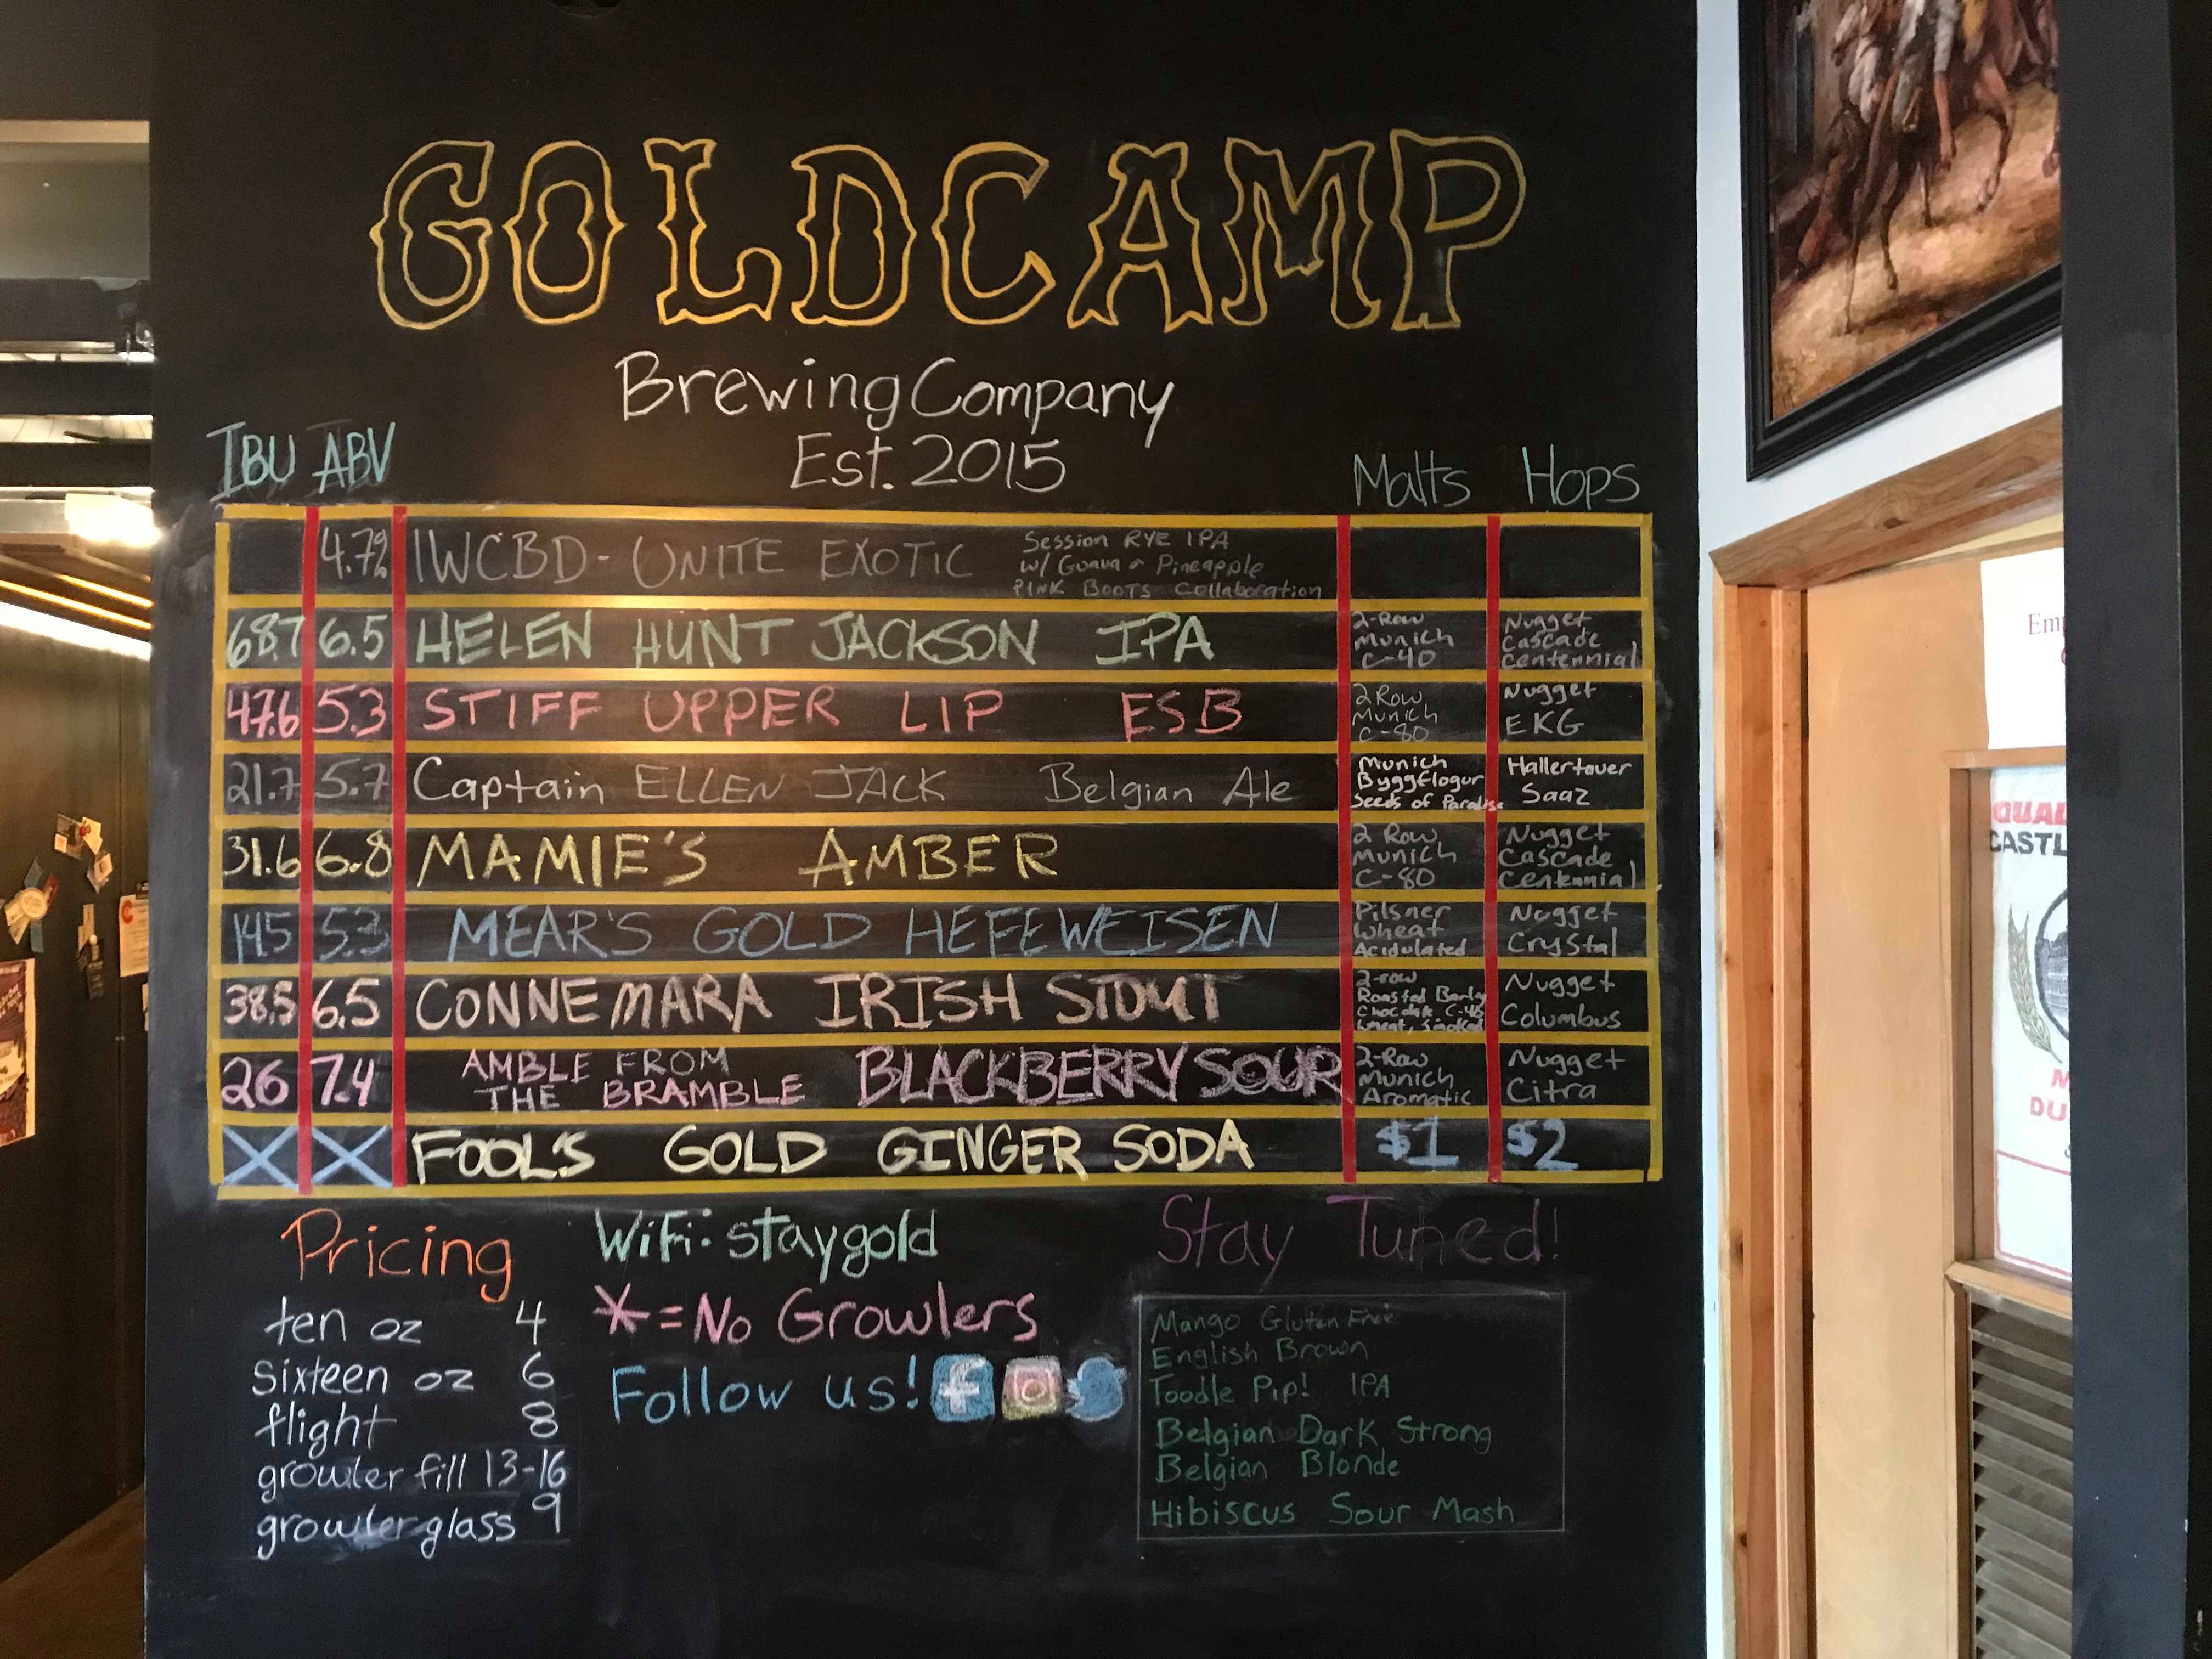 GOLDCAMP
Brewing Company
Est. 2015
IBU ABV Malts Hops
4.7% IWCBD - UNITE EXOTIC Session RYE IPA
w/ Guava & Pineapple
PINK BOOTS Collaboration
68.7 6.5 HELEN HUNT JACKSON IPA
2-Row
Munich
C-40
Nugget
Cascade
Centennial
47.6 5.3 STIFF UPPER LIP ESB
2 Row
Munich
C-80
Nugget
EKG
21.7 5.7 Captain ELLEN JACK Belgian Ale
Munich
Byggflogur
Seeds of Paradise
Hallertauer
Saaz
31.6 6.8 MAMIE'S AMBER
2 Row
Munich
C-80
Nugget
Cascade
Centennial
14.5 5.3 MEAR'S GOLD HEFEWEISEN
Pilsner
Wheat
Acidulated
Nugget
Crystal
38.5 6.5 CONNEMARA IRISH STOUT
2-row
Roasted Barly
Chocolate C-40
Wheat, Smoked
Nugget
Columbus
26 7.4 AMBLE FROM
THE BRAMBLE BLACKBERRY SOUR
2-Row
Munich
Aromatic
Nugget
Citra
X X FOOL'S GOLD GINGER SODA $1 $2
Pricing
ten oz 4
sixteen oz 6
flight 8
growler fill 13-16
growler glass 9
WiFi: staygold
* = No Growlers
Follow us! f
Stay Tuned!
Mango Gluten Free
English Brown
Toodle Pip! IPA
Belgian Dark Strong
Belgian Blonde
Hibiscus Sour Mash